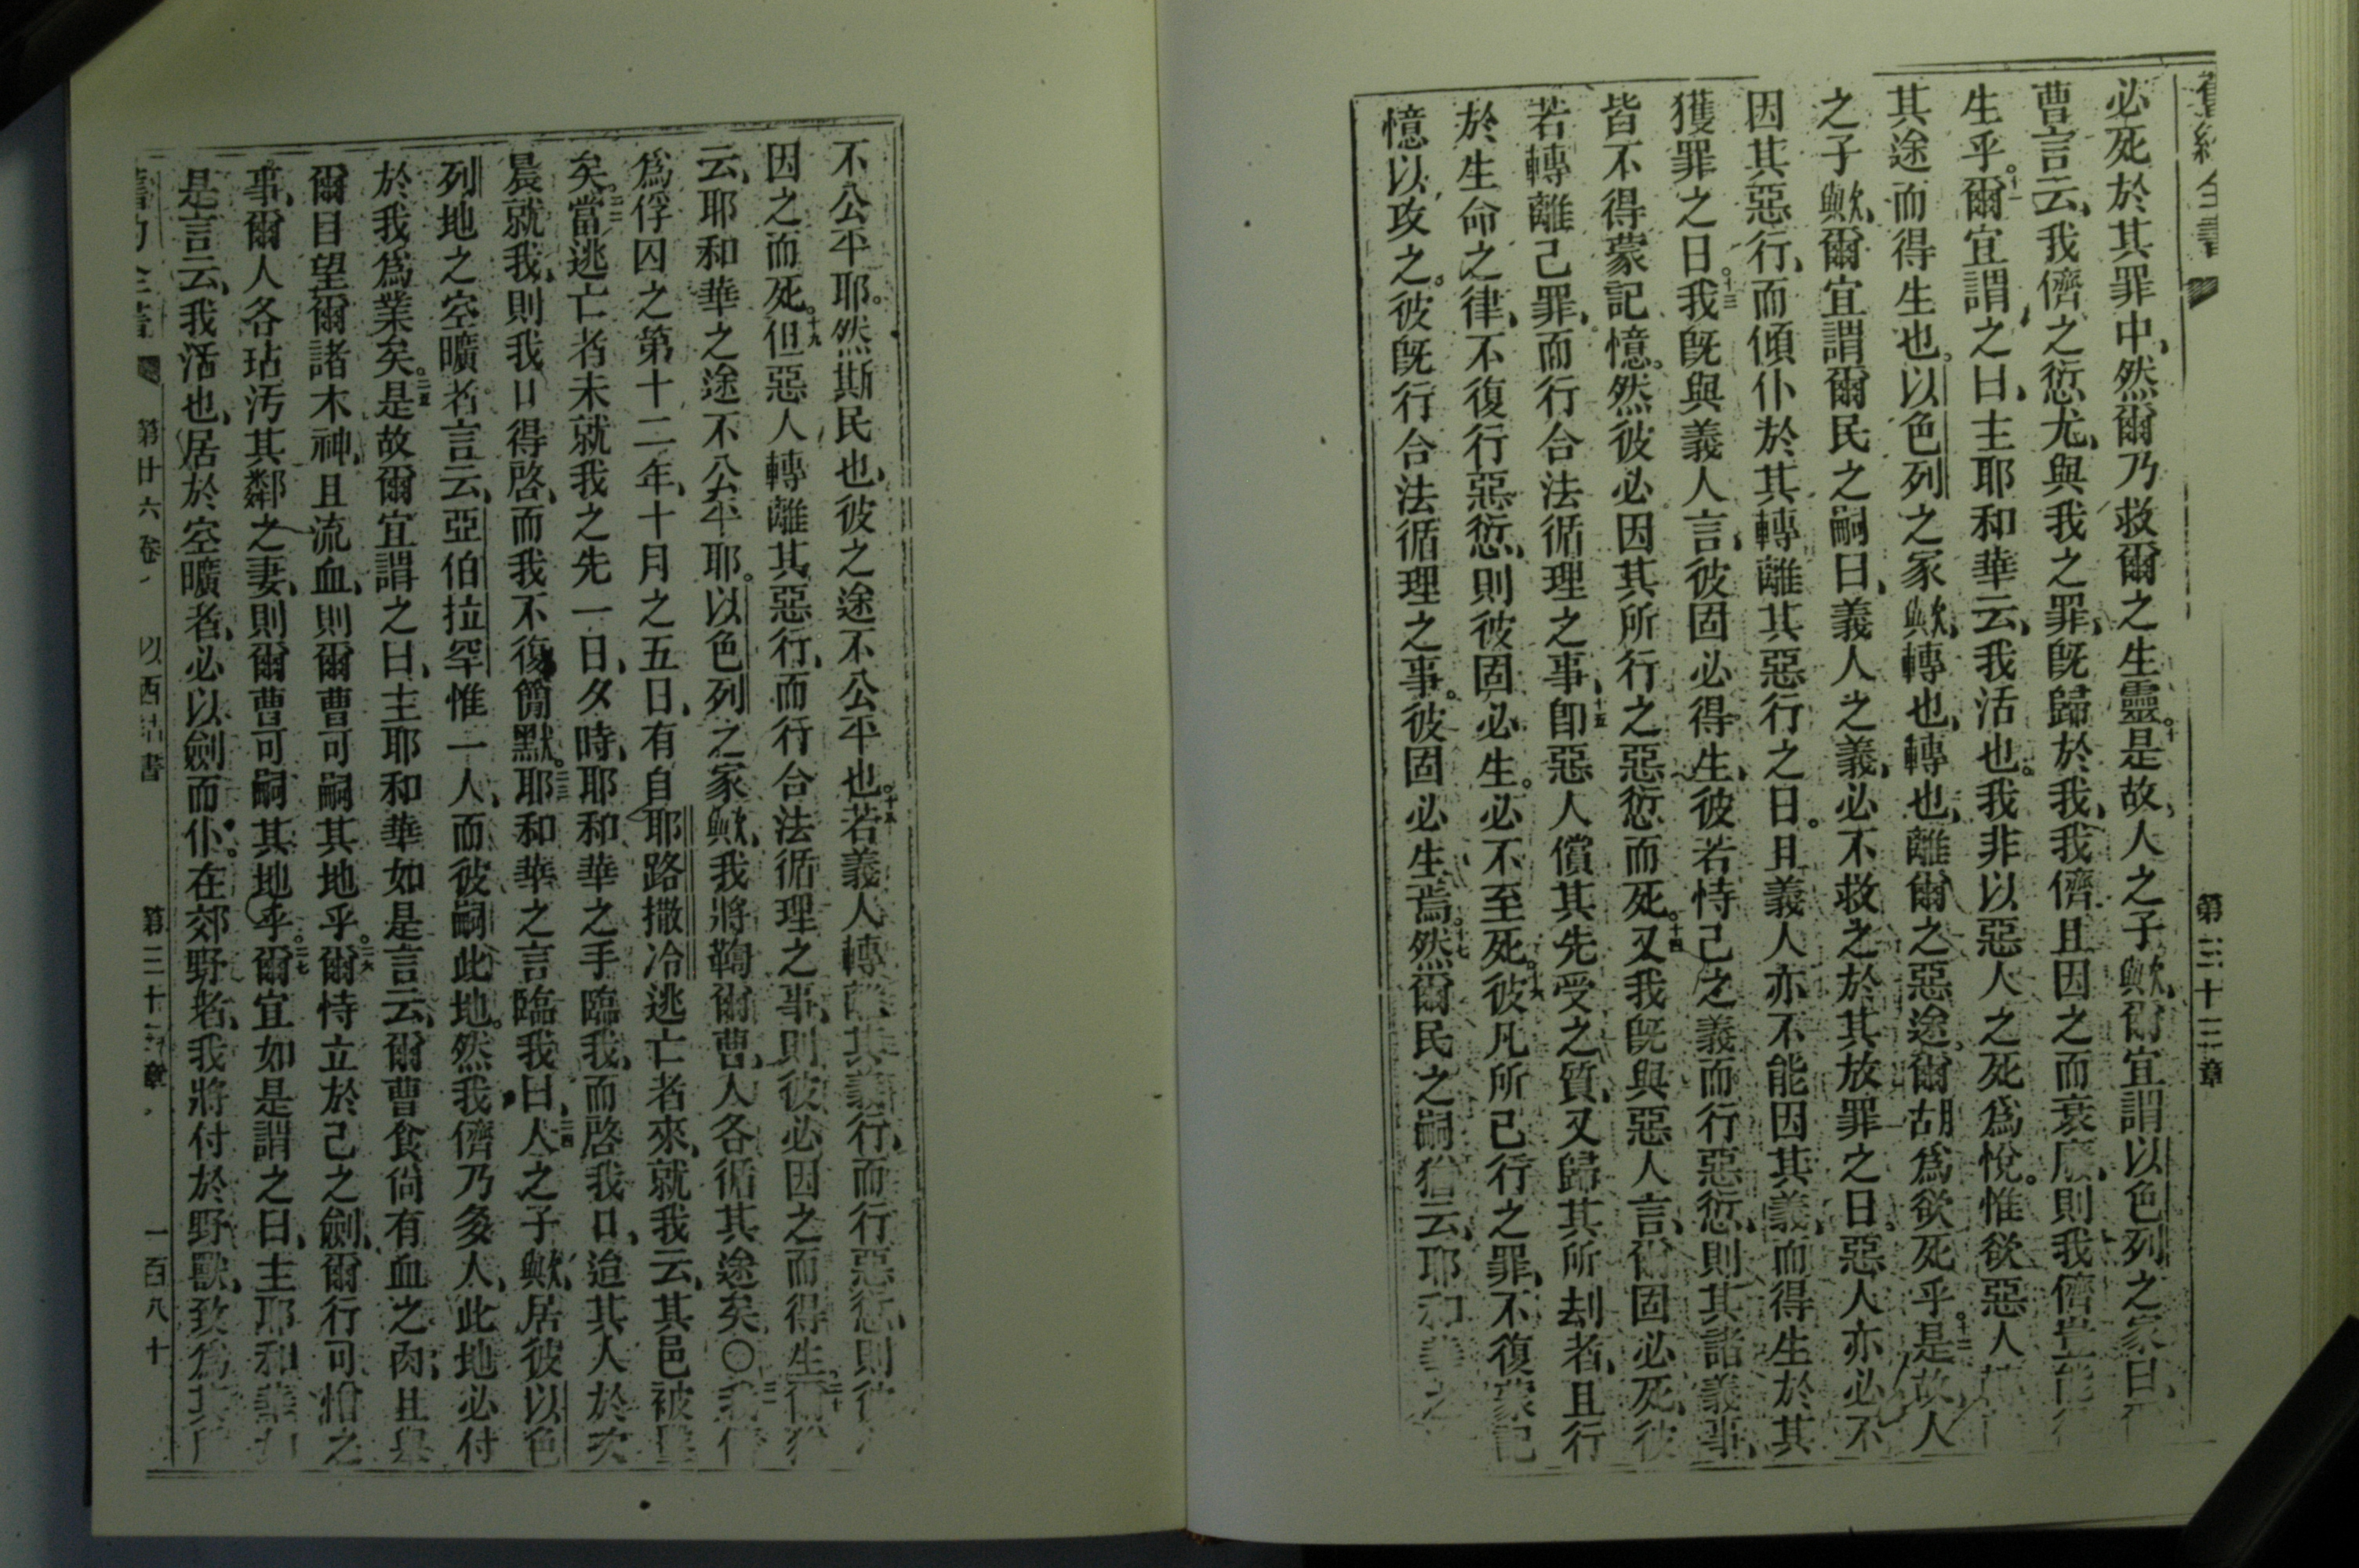 第三十三章
必死於其罪中、然爾乃救爾之生靈。十是故、人之子歟、爾宜謂以色列之家曰、
曹言云、我儕之愆尤、與我之罪、旣歸於我、我儕且因之而衰廢、則我儕豈能
生乎。十一爾宜謂之曰、主耶和華云、我活也。我非以惡人之死爲悅。惟欲惡人
其途而得生也。以色列之家歟、轉也、轉也、離爾之惡途、爾胡爲欲死乎。十二是故、人
之子歟、爾宜謂爾民之嗣曰、義人之義、必不救之於其放罪之日。惡人亦必不
因其惡行、而傾仆於其轉離其惡行之日。且義人亦不能因其義、而得生於其
獲罪之日。十三我旣與義人言、彼固必得生、彼若恃己之義而行惡愆、則其諸義事、
皆不得蒙記憶。然彼必因其所行之惡愆而死。十四又我旣與惡人言、爾固必死、彼
若轉離己罪、而行合法循理之事、十五卽惡人償其先受之質、又歸其所刦者、且行
於生命之律、不復行惡愆、則彼固必生。必不至死。十六彼凡所已行之罪、不復蒙記
憶以攻之。彼旣行合法循理之事。彼固必生焉。十七然爾民之嗣猶云、耶和華之
不公平耶。然斯民也、彼之途不公平也。十八若義人轉離其義行、而行惡愆、則彼
因之而死。十九但惡人轉離其惡行、而行合法循理之事、則彼必因之而得生。二十爾猶
云、耶和華之途不公平耶。以色列之家歟、我將鞫爾曹、人各循其途矣〇二一我
爲俘囚之第十二年、十月之五日、有自耶路撒冷逃亡者來、就我云、其邑被擊
矣。二二當逃亡者未就我之先一日、夕時、耶和華之手臨我、而啓我口、迨其人於次
晨就我、則我口得啓、而我不復簡默。二三耶和華之言臨我曰、二四人之子歟、居彼以色
列地之空曠者言云、亞伯拉罕惟一人、而彼嗣此地。然我儕乃多人、此地必付
於我爲業矣。二五是故爾宜謂之曰、主耶和華如是言云、爾曹食尙有血之肉、且舉
爾目望爾諸木神、且流血、則爾曹可嗣其地乎。二六爾恃立於己之劍、爾行可憎之
事、爾人各玷汚其鄰之妻、則爾曹可嗣其地乎。二七爾宜如是謂之曰、主耶和華如
是言云、我活也、居於空曠者、必以劍而仆。在郊野者、我將付於野獸、致爲其
舊約全書 第廿六卷 以西結書 第三十三章 一百八十